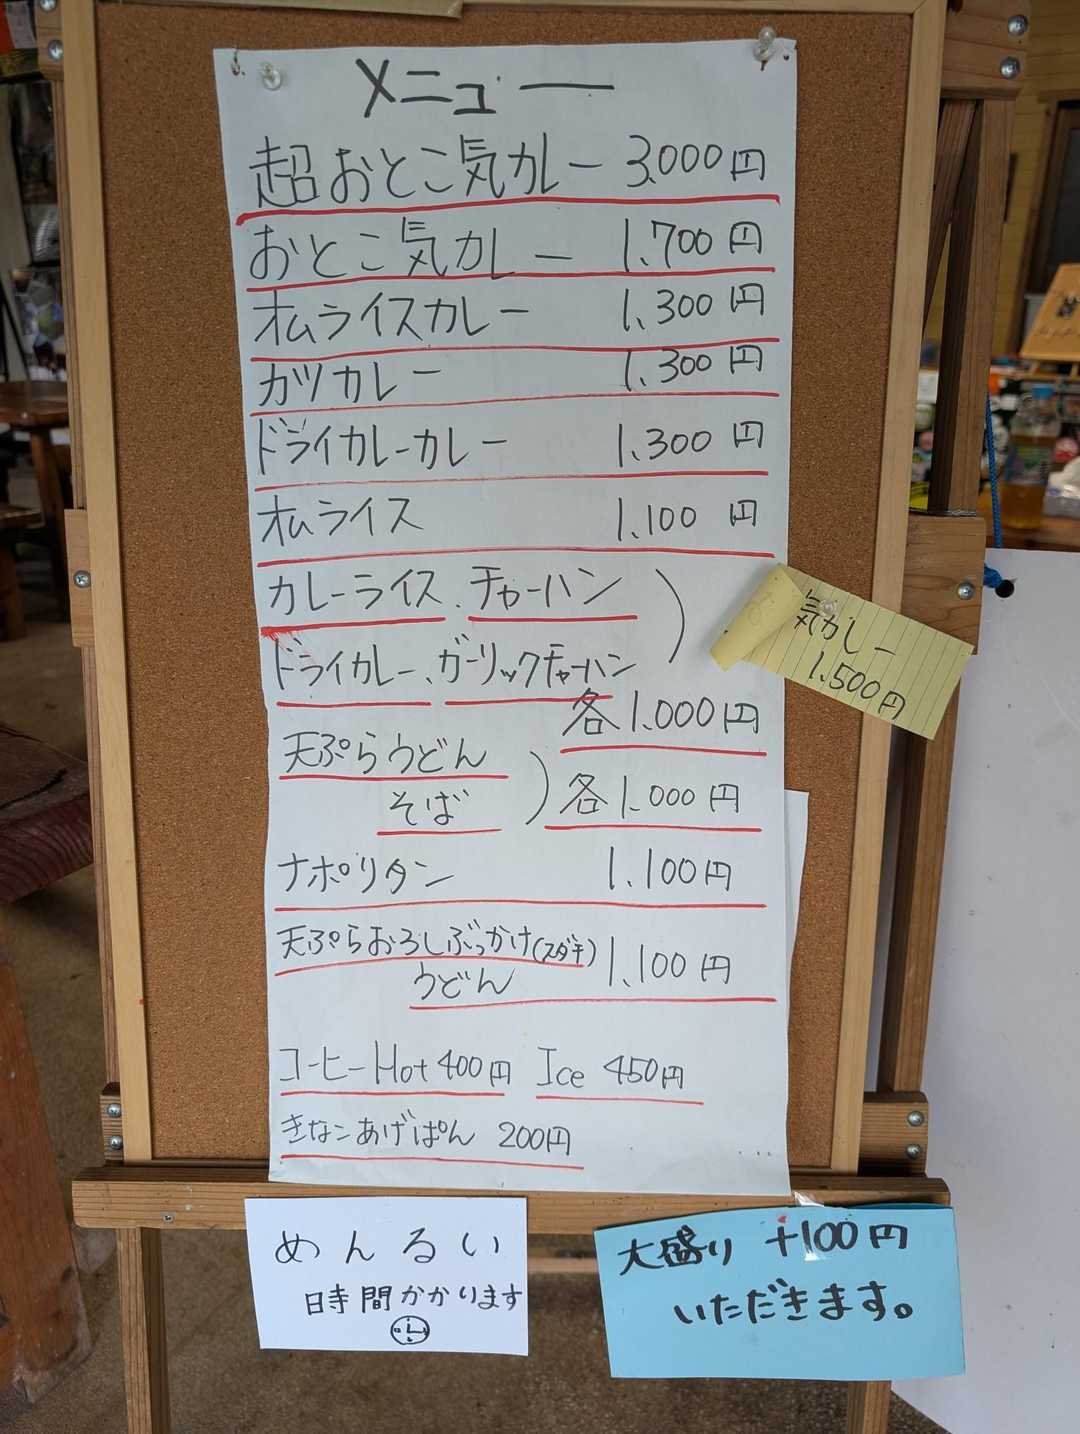 メニュー
超おとこ気カレー 3.000円
おとこ気カレー 1.700円
オムライスカレー 1.300円
カツカレー 1.300円
ドライカレーカレー 1.300円
オムライス 1.100円
カレーライス、チャーハン
ドライカレー、ガーリックチャーハン
各1.000円
天ぷらうどん
そば 各1.000円
ナポリタン 1.100円
天ぷらおろしぶっかけ(スダチ)
うどん 1.100円
コーヒーHot 400円 Ice 450円
きなこあげぱん 200円
気カレー
1.500円
めんるい
時間かかります
大盛り +100円
いただきます。